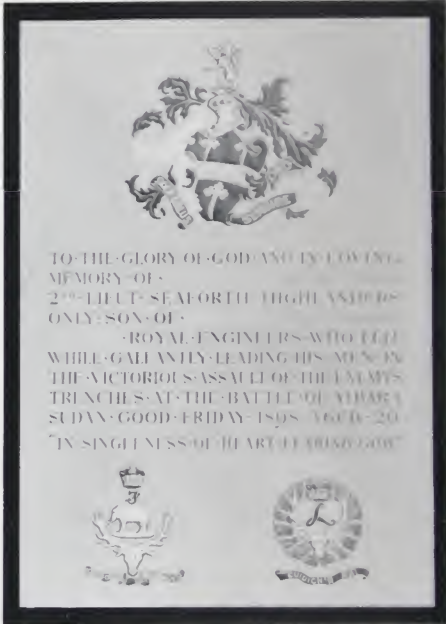 TO·THE·GLORY·OF·GOD·AND·IN·LOVING·
MEMORY·OF·
2ND·LIEUT·SEAFORTH·HIGHLANDERS·
ONLY·SON·OF·
·ROYAL·ENGINEERS·WHO·FELL
WHILE·GALLANTLY·LEADING·HIS·MEN·IN
THE·VICTORIOUS·ASSAULT·OF·THE·ENEMYS
TRENCHES·AT·THE·BATTLE·OF·ATBARA
SUDAN·GOOD·FRIDAY·1898·AGED·20·
"IN·SINGLENESS·OF·HEART·FEARING·GOD"
F
L
CUIDICH'N